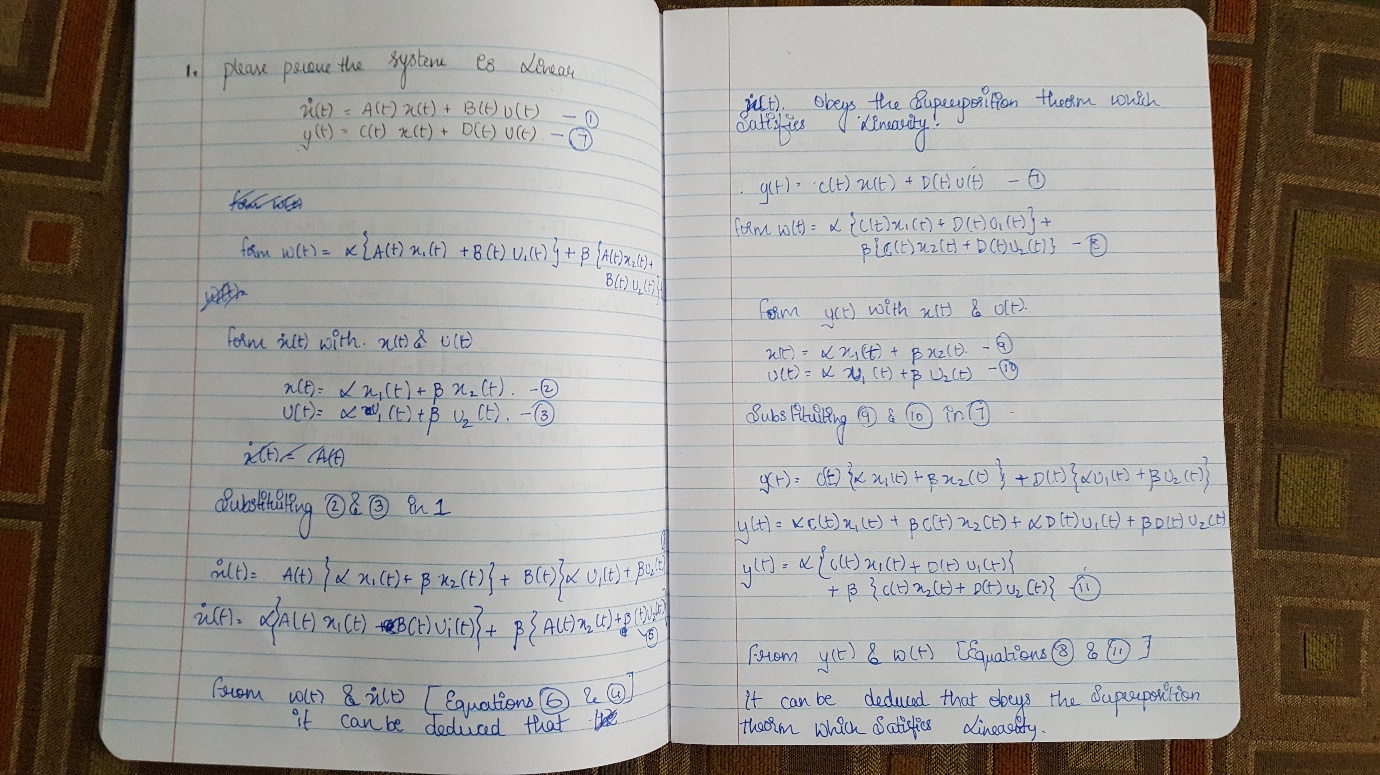 1. please prove the system is Linear
ẋ(t) = A(t) x(t) + B(t) U(t) - ①
y(t) = C(t) x(t) + D(t) U(t) - ⑦
form w(t) = α {A(t) x₁(t) + B(t) U₁(t)} + β {A(t)x₂(t) +
B(t) U₂(t)}
form ẋ(t) with. x(t) & U(t)
x(t) = α x₁(t) + β x₂(t). - ②
U(t) = α u₁(t) + β U₂(t). - ③
ẋ(t) = (A(t)
Substituting ② & ③ in 1
ẋ(t) = A(t) {α x₁(t) + β x₂(t)} + B(t){α U₁(t) + βU₂(t)
ẋ(t) = α{A(t) x₁(t) + B(t) U₁(t)} + β {A(t) x₂(t) + B(t)U₂(t)}
From w(t) & ẋ(t) [Equations ⑥ & ④]
it can be deduced that
ẋ(t). obeys the Superposition theorm which
Satisfies Linearity.
y(t) = C(t) x(t) + D(t) U(t) - ⑦
form w(t) = α {C(t)x₁(t) + D(t)U₁(t)} +
β{C(t)x₂(t) + D(t)U₂(t)} - ⑧
Form y(t) with x(t) & U(t).
x(t) = α x₁(t) + β x₂(t). - ⑨
U(t) = α u₁(t) + β U₂(t) - ⑩
Substituting ⑨ & ⑩ in ⑦
y(t) = C(t) {α x₁(t) + β x₂(t)} + D(t) {αU₁(t) + βU₂(t)}
y(t) = αC(t)x₁(t) + βC(t)x₂(t) + αD(t)U₁(t) + βD(t)U₂(t)
y(t) = α{C(t)x₁(t) + D(t)U₁(t)}
+ β {C(t)x₂(t) + D(t)U₂(t)} - ⑪
From y(t) & w(t) [Equations ⑧ & ⑪]
it can be deduced that obeys the Superposition
theorm which Satisfies Linearity.